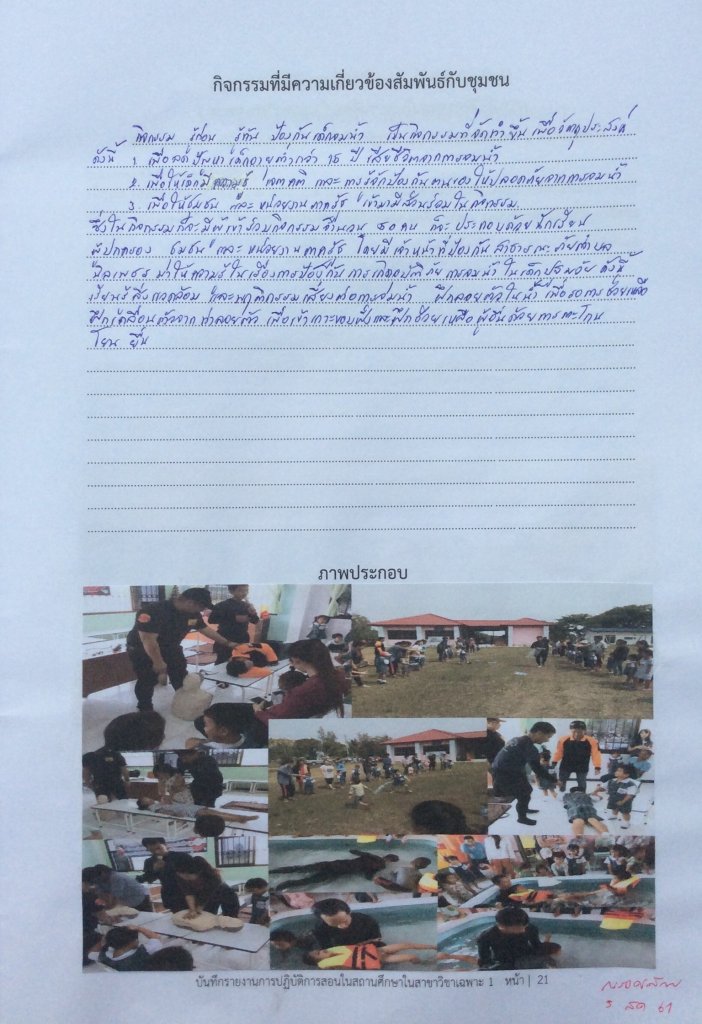 กิจกรรมที่มีความเกี่ยวข้องสัมพันธ์กับชุมชน
กิจกรรม รู้ก่อน รู้ทัน ป้องกันเด็กจมน้ำ เป็นกิจกรรมที่จัดทำขึ้น เพื่อวัตถุประสงค์
ดังนี้ 1. เพื่อลดปัญหาเด็กอายุต่ำกว่า 15 ปี เสียชีวิตจากการจมน้ำ
2. เพื่อให้เด็กมีความรู้ เจตคติ และการรู้จักป้องกันตนเองให้ปลอดภัยจากการจมน้ำ
3. เพื่อให้ชุมชน และหน่วยงานภาครัฐ เข้ามามีส่วนร่วมในกิจกรรม
ซึ่งในกิจกรรมก็จะมีผู้เข้าร่วมกิจกรรมจำนวน คน ก็จะประกอบด้วยนักเรียน
ผู้ปกครอง ชุมชน และหน่วยงานภาครัฐ โดยมีเจ้าหน้าที่ป้องกันสาธารณะภัยตำบล
มาให้ความรู้ในเรื่องการป้องกัน การเกิดอุบัติภัยการจมน้ำในเด็กปฐมวัย ดังนี้
เรียนรู้สิ่งแวดล้อม และพฤติกรรมเสี่ยงต่อการจมน้ำ ฝึกลอยตัวในน้ำเพื่อรอการช่วยเหลือ
ฝึกเคลื่อนตัวจากท่าลอยตัว เพื่อเข้าเกาะขอบฝั่งและฝึกช่วยเหลือผู้อื่นด้วยการตะโกน
โยน ยื่น
ภาพประกอบ
บันทึกรายงานการปฏิบัติการสอนในสถานศึกษาในสาขาวิชาเฉพาะ 1 หน้า | 21
61